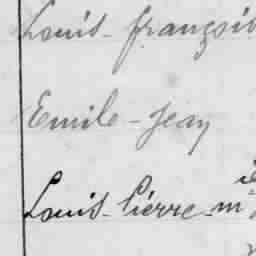 Louis-françois
Emile-Jean
Louis-Pierre-m